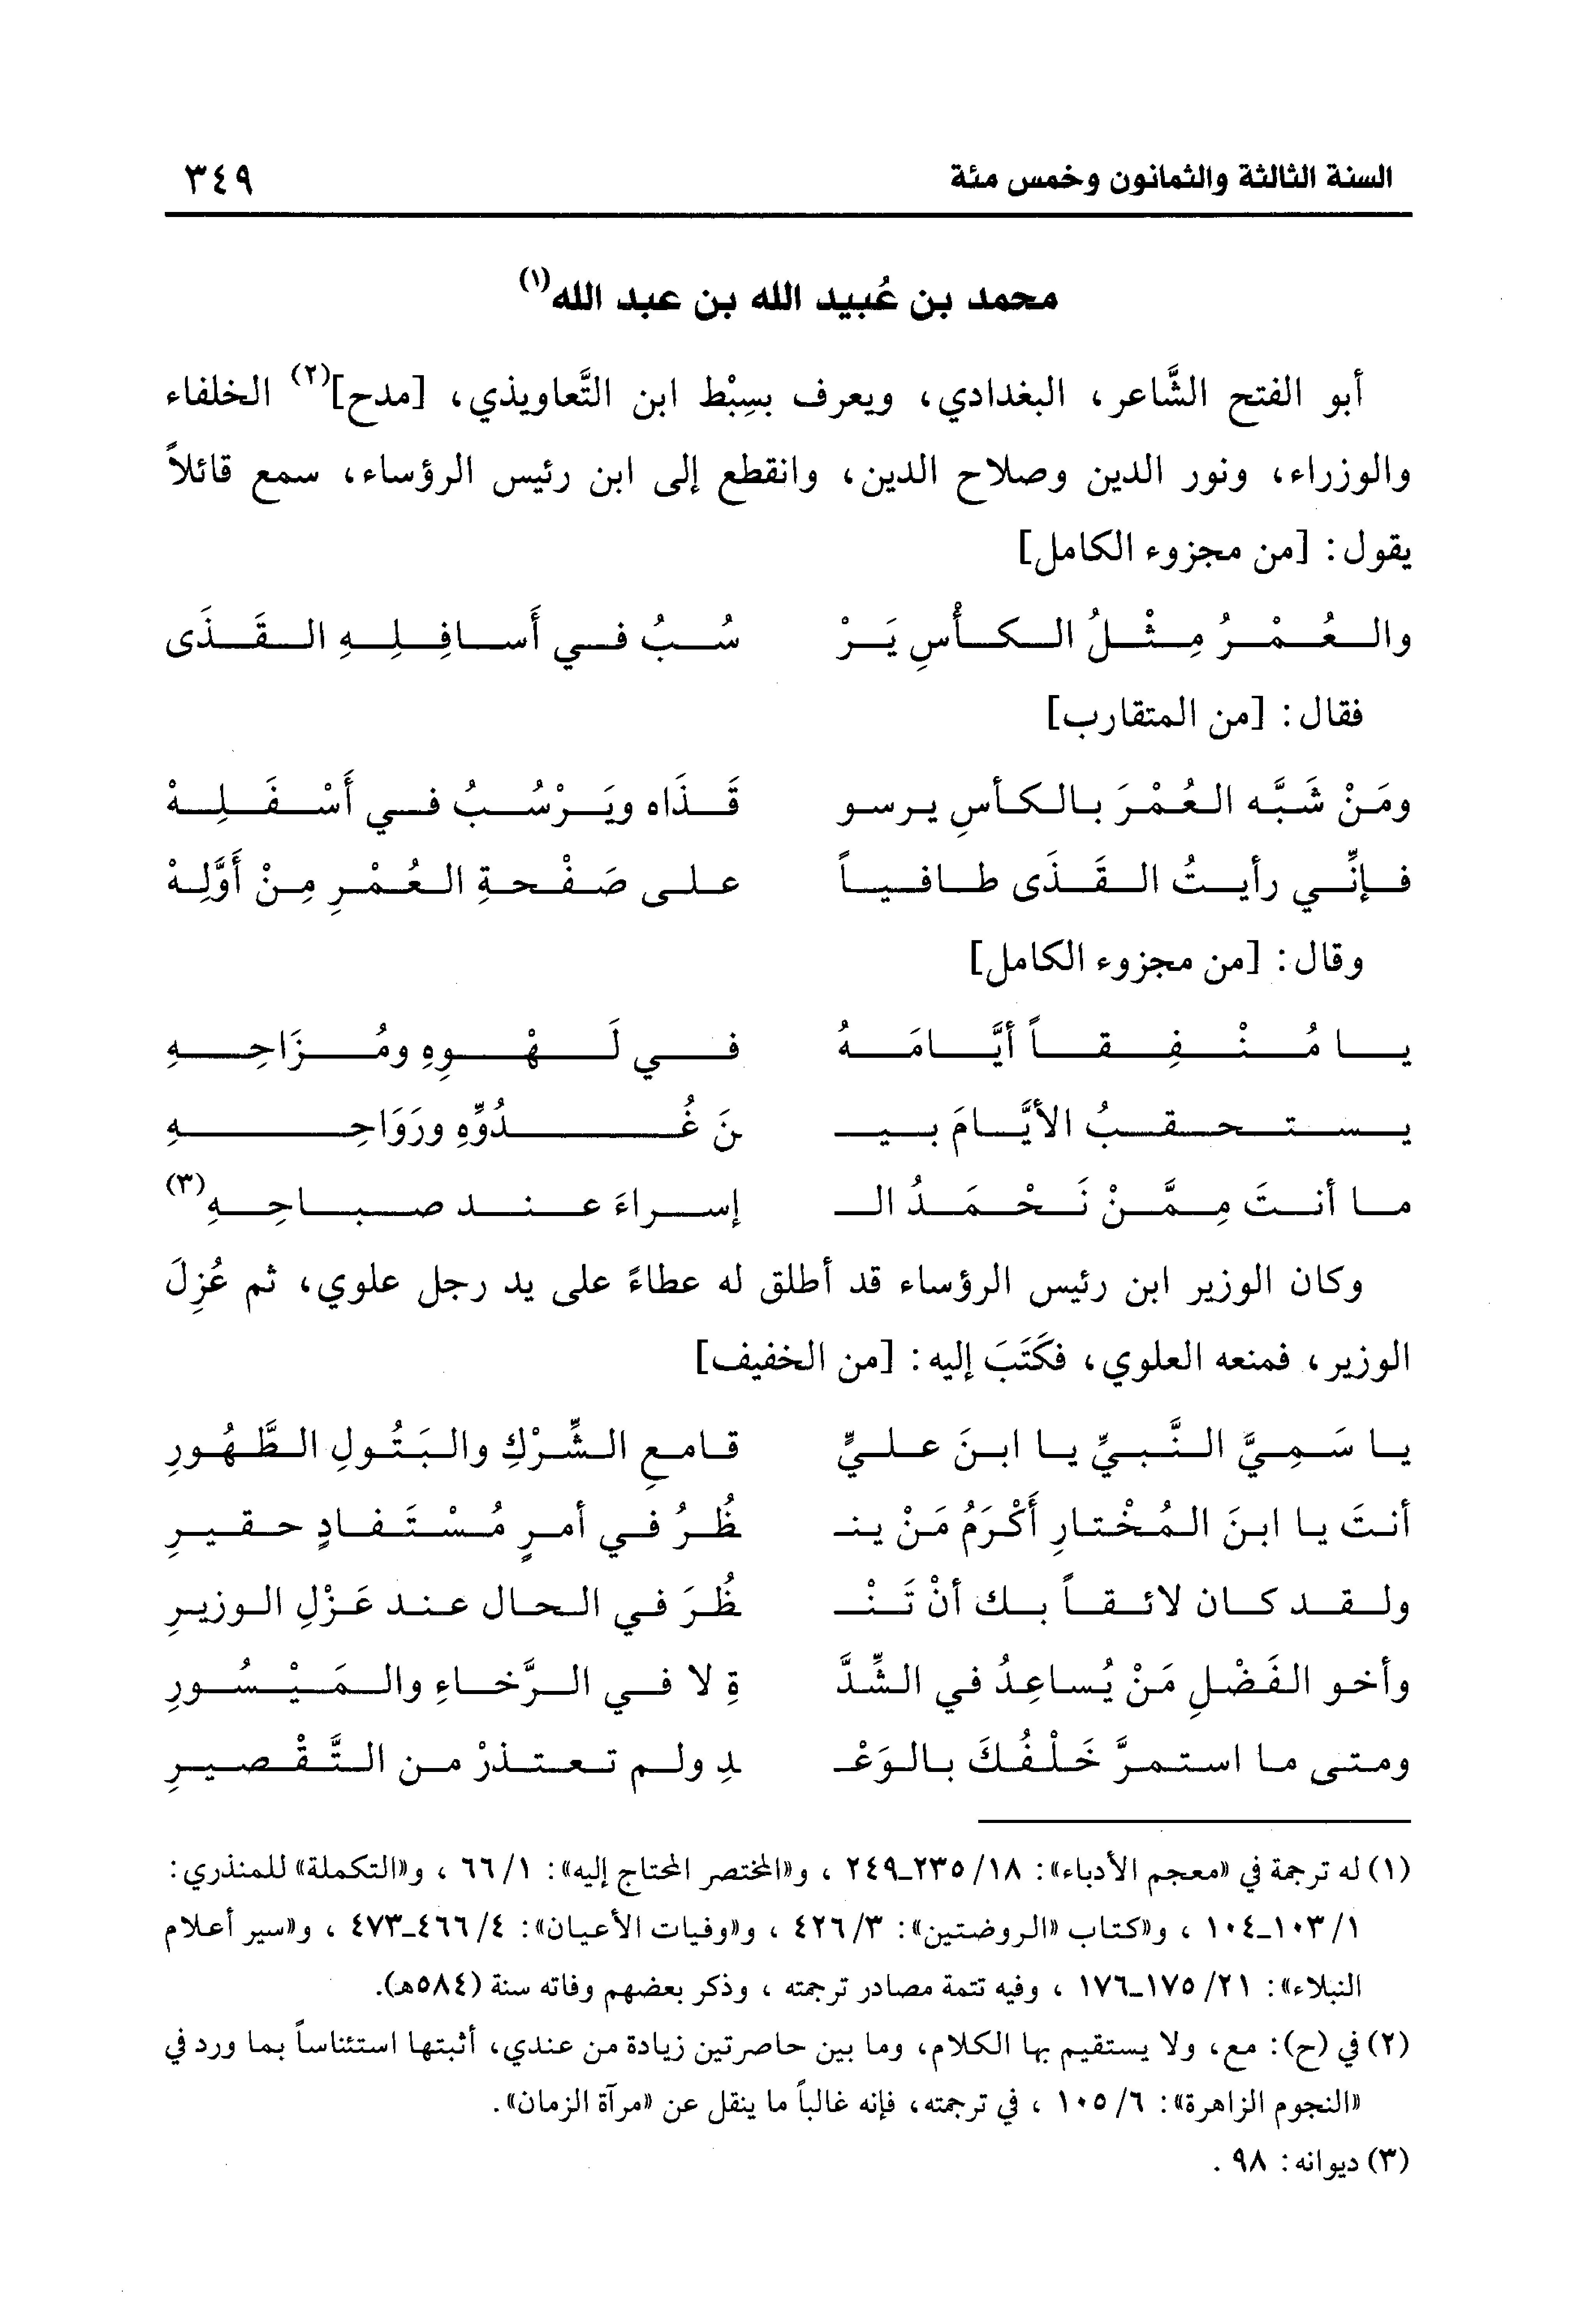 السنة الثالثة والثمانون وخمس مئة ٣٤٩
محمد بن عُبيد الله بن عبد الله(١)
أبو الفتح الشَّاعر، البغدادي، ويعرف بسِبْط ابن التَّعاويذي، [مدح](٢) الخلفاء
والوزراء، ونور الدين وصلاح الدين، وانقطع إلى ابن رئيس الرؤساء، سمع قائلاً
يقول: [من مجزوء الكامل]
والعُمْرُ مِثْلُ الكأْسِ يَرْ سُبُ في أَسافِلِهِ القَذَى
فقال: [من المتقارب]
ومَنْ شَبَّه العُمْرَ بالكأسِ يرسو قَذَاه ويَرْسُبُ في أَسْفَلِهْ
فإنِّي رأيتُ القَذَى طافياً على صَفْحةِ العُمْرِ مِنْ أَوَّلِهْ
وقال: [من مجزوء الكامل]
يا مُنْفِقاً أيَّامَهُ في لَهْوِهِ ومُزَاحِهِ
يستحقبُ الأيَّامَ بيـ ـنَ غُدُوِّهِ ورَوَاحِهِ
ما أنتَ مِمَّنْ نَحْمَدُ الـ إسراءَ عند صباحِهِ(٣)
وكان الوزير ابن رئيس الرؤساء قد أطلق له عطاءً على يد رجل علوي، ثم عُزِلَ
الوزير، فمنعه العلوي، فكَتَبَ إليه: [من الخفيف]
يا سَمِيَّ النَّبيِّ يا ابنَ عليٍّ قامعِ الشِّرْكِ والبَتُولِ الطَّهُورِ
أنتَ يا ابنَ المُخْتارِ أَكْرَمُ مَنْ ينـ ـظُرُ في أمرٍ مُسْتَفادٍ حقيرِ
ولقد كان لائقاً بك أنْ تَنْـ ـظُرَ في الحال عند عَزْلِ الوزيرِ
وأخو الفَضْلِ مَنْ يُساعِدُ في الشِّدَّ ةِ لا في الرَّخاءِ والمَيْسُورِ
ومتى ما استمرَّ خَلْفُكَ بالوَعْـ ـدِ ولم تعتذرْ من التَّقْصيرِ
(١) له ترجمة في «معجم الأدباء»: ١٨/ ٢٣٥_٢٤٩ ، و«المختصر المحتاج إليه»: ١/ ٦٦ ، و«التكملة» للمنذري:
١/ ١٠٣_١٠٤ ، و«كتاب «الروضتين»: ٣/ ٤٢٦ ، و«وفيات الأعيان»: ٤/ ٤٦٦_٤٧٣ ، و«سير أعلام
النبلاء»: ٢١/ ١٧٥_١٧٦ ، وفيه تتمة مصادر ترجمته ، وذكر بعضهم وفاته سنة (٥٨٤هـ).
(٢) في (ح): مع، ولا يستقيم بها الكلام، وما بين حاصرتين زيادة من عندي، أثبتها استئناساً بما ورد في
«النجوم الزاهرة»: ٦/ ١٠٥ ، في ترجمته، فإنه غالباً ما ينقل عن «مرآة الزمان».
(٣) ديوانه: ٩٨ .